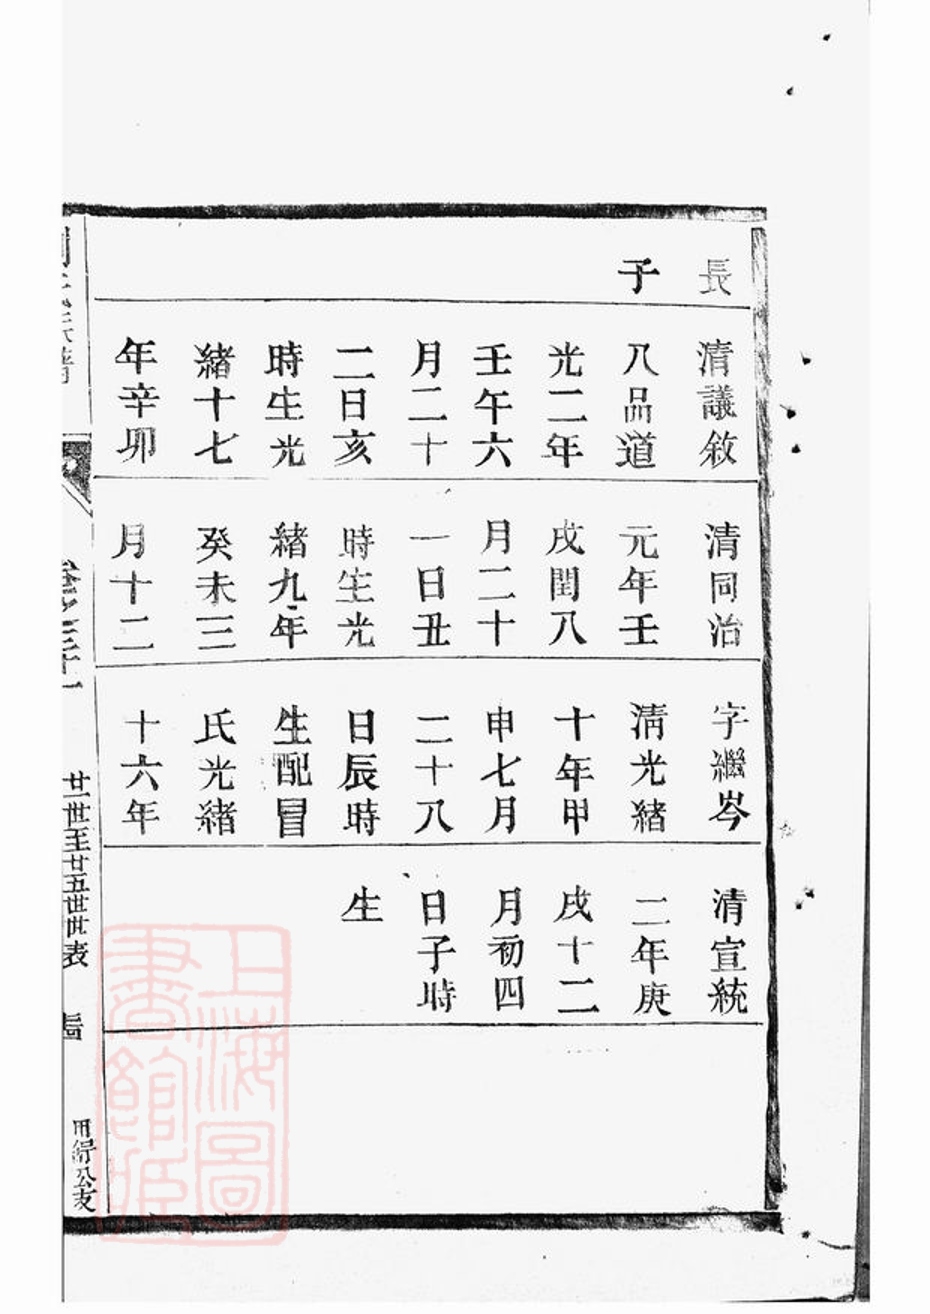 長
子
清議敘
八品道
光二年
壬午六
月二十
二日亥
時生光
緒十七
年辛卯
清同治
元年壬
戌閏八
月二十
一日丑
時生光
緒九年
癸未三
月十二
字繼岑
清光緒
十年甲
申七月
二十八
日辰時
生配冒
氏光緒
十六年
清宣統
二年庚
戌十二
月初四
日子時
生
廿一世至廿五世世表
上海圖
書館藏